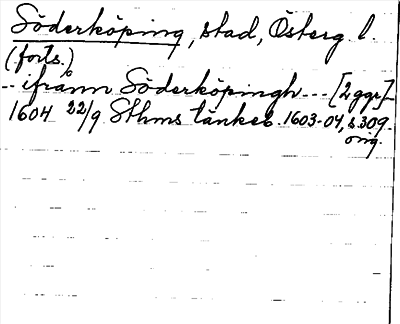 Söderköping, stad, Österg. l.
(forts.)
-- ifrånn Söderköpingh --- [2 ggr]-
1604 22/9 Sthms tänkeb. 1603-04, s. 309.
orig.